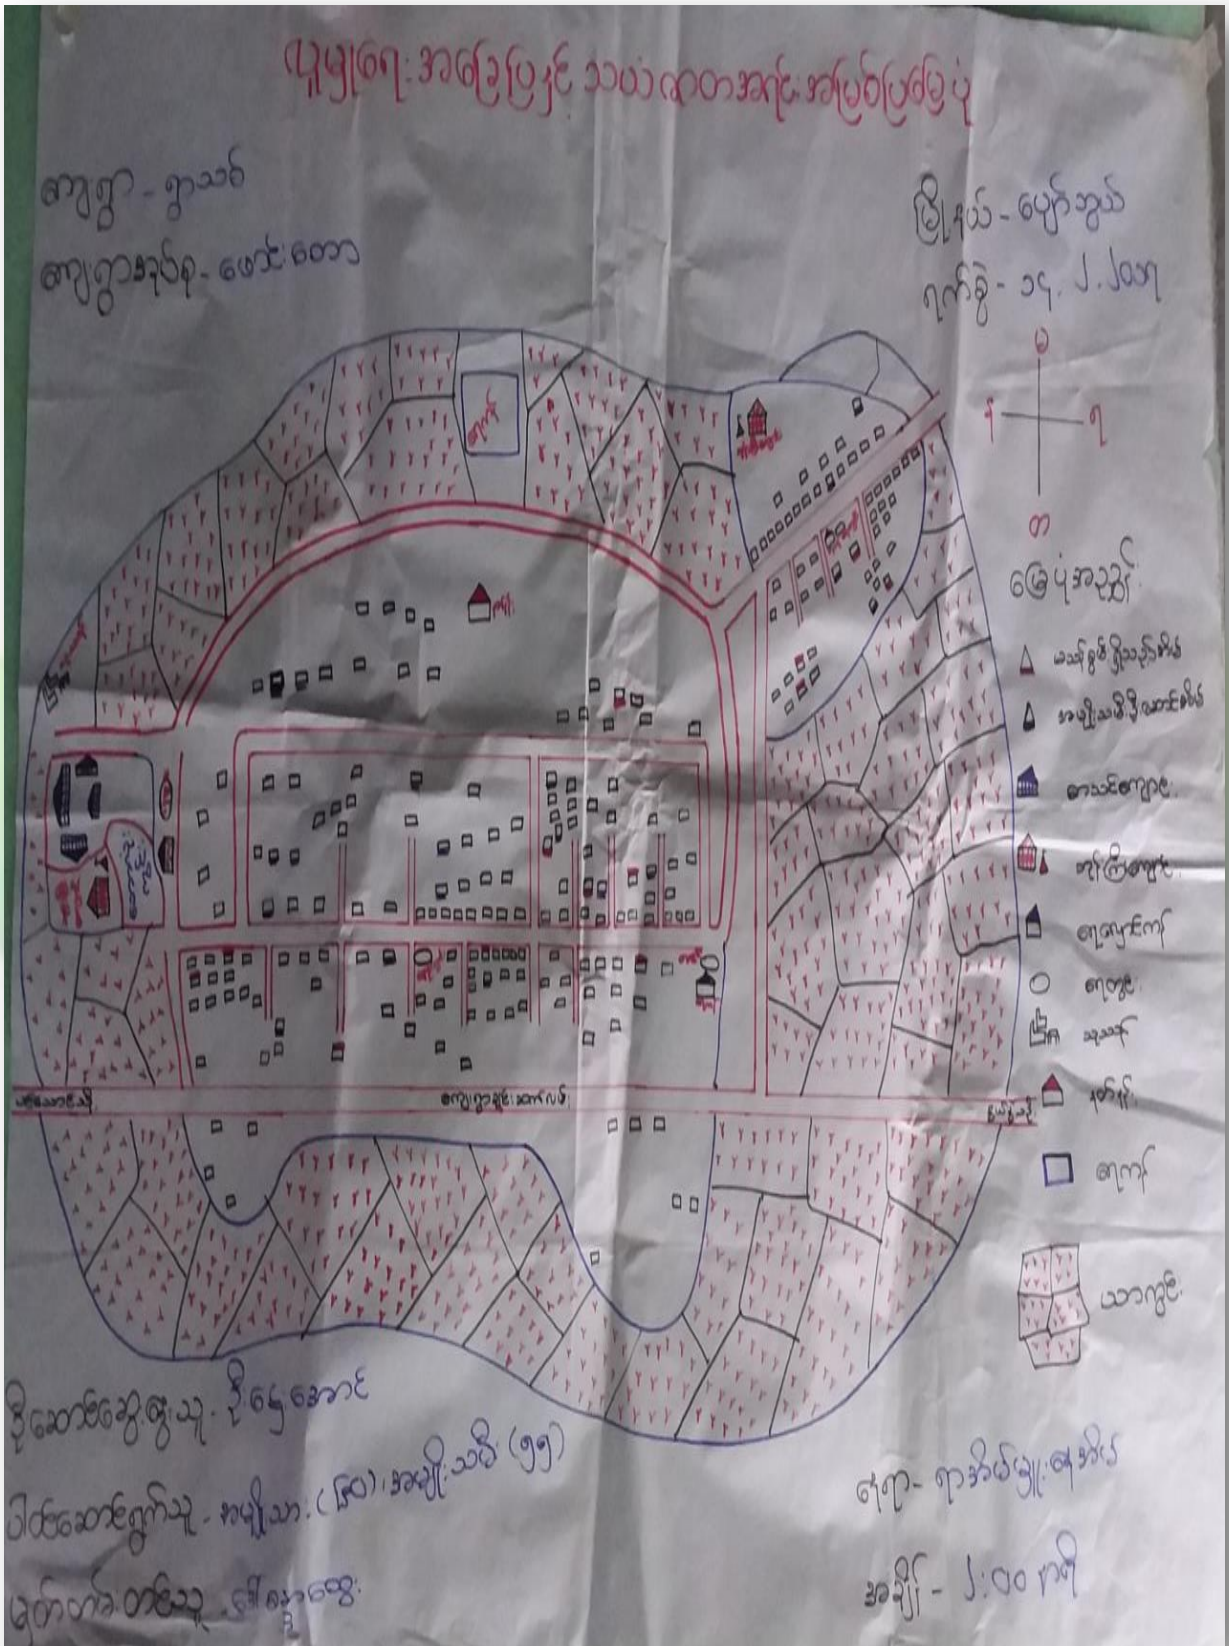 လူမှုရေးအခြေပြနှင့် သယံဇာတအရင်းအမြစ်ပြမြေပုံ
ကျေးရွာ - ရွာသစ်
မြို့နယ် - ပျော်ဘွယ်
ကျေးရွာအုပ်စု - ဖောင်းတော
ရက်စွဲ - ၁၄.၂.၂၀၁၇
မ
န
ရ
တ
မြေပုံအညွှန်း
မသန်စွမ်းရှိသည့်အိမ်
အမျိုးသမီးဦးဆောင်အိမ်
စာသင်ကျောင်း
ဘုန်းကြီးကျောင်း
ရေလှောင်ကန်
ရေတွင်း
သုသာန်
နတ်နန်း
ရေကန်
ယာကွင်း
ရေကန်
ကျေးရွာချင်းဆက်လမ်း
ဦးဆောင်ဆွေးနွေးသူ - ဦးဌေးအောင်
ပါဝင်ဆောင်ရွက်သူ - အမျိုးသား (၆၀)၊ အမျိုးသမီး (၅၅)
မှတ်တမ်းတင်သူ -
နေရာ - ရာအိမ်မှူးနေအိမ်
အချိန် - ၂:၀၀ နာရီ